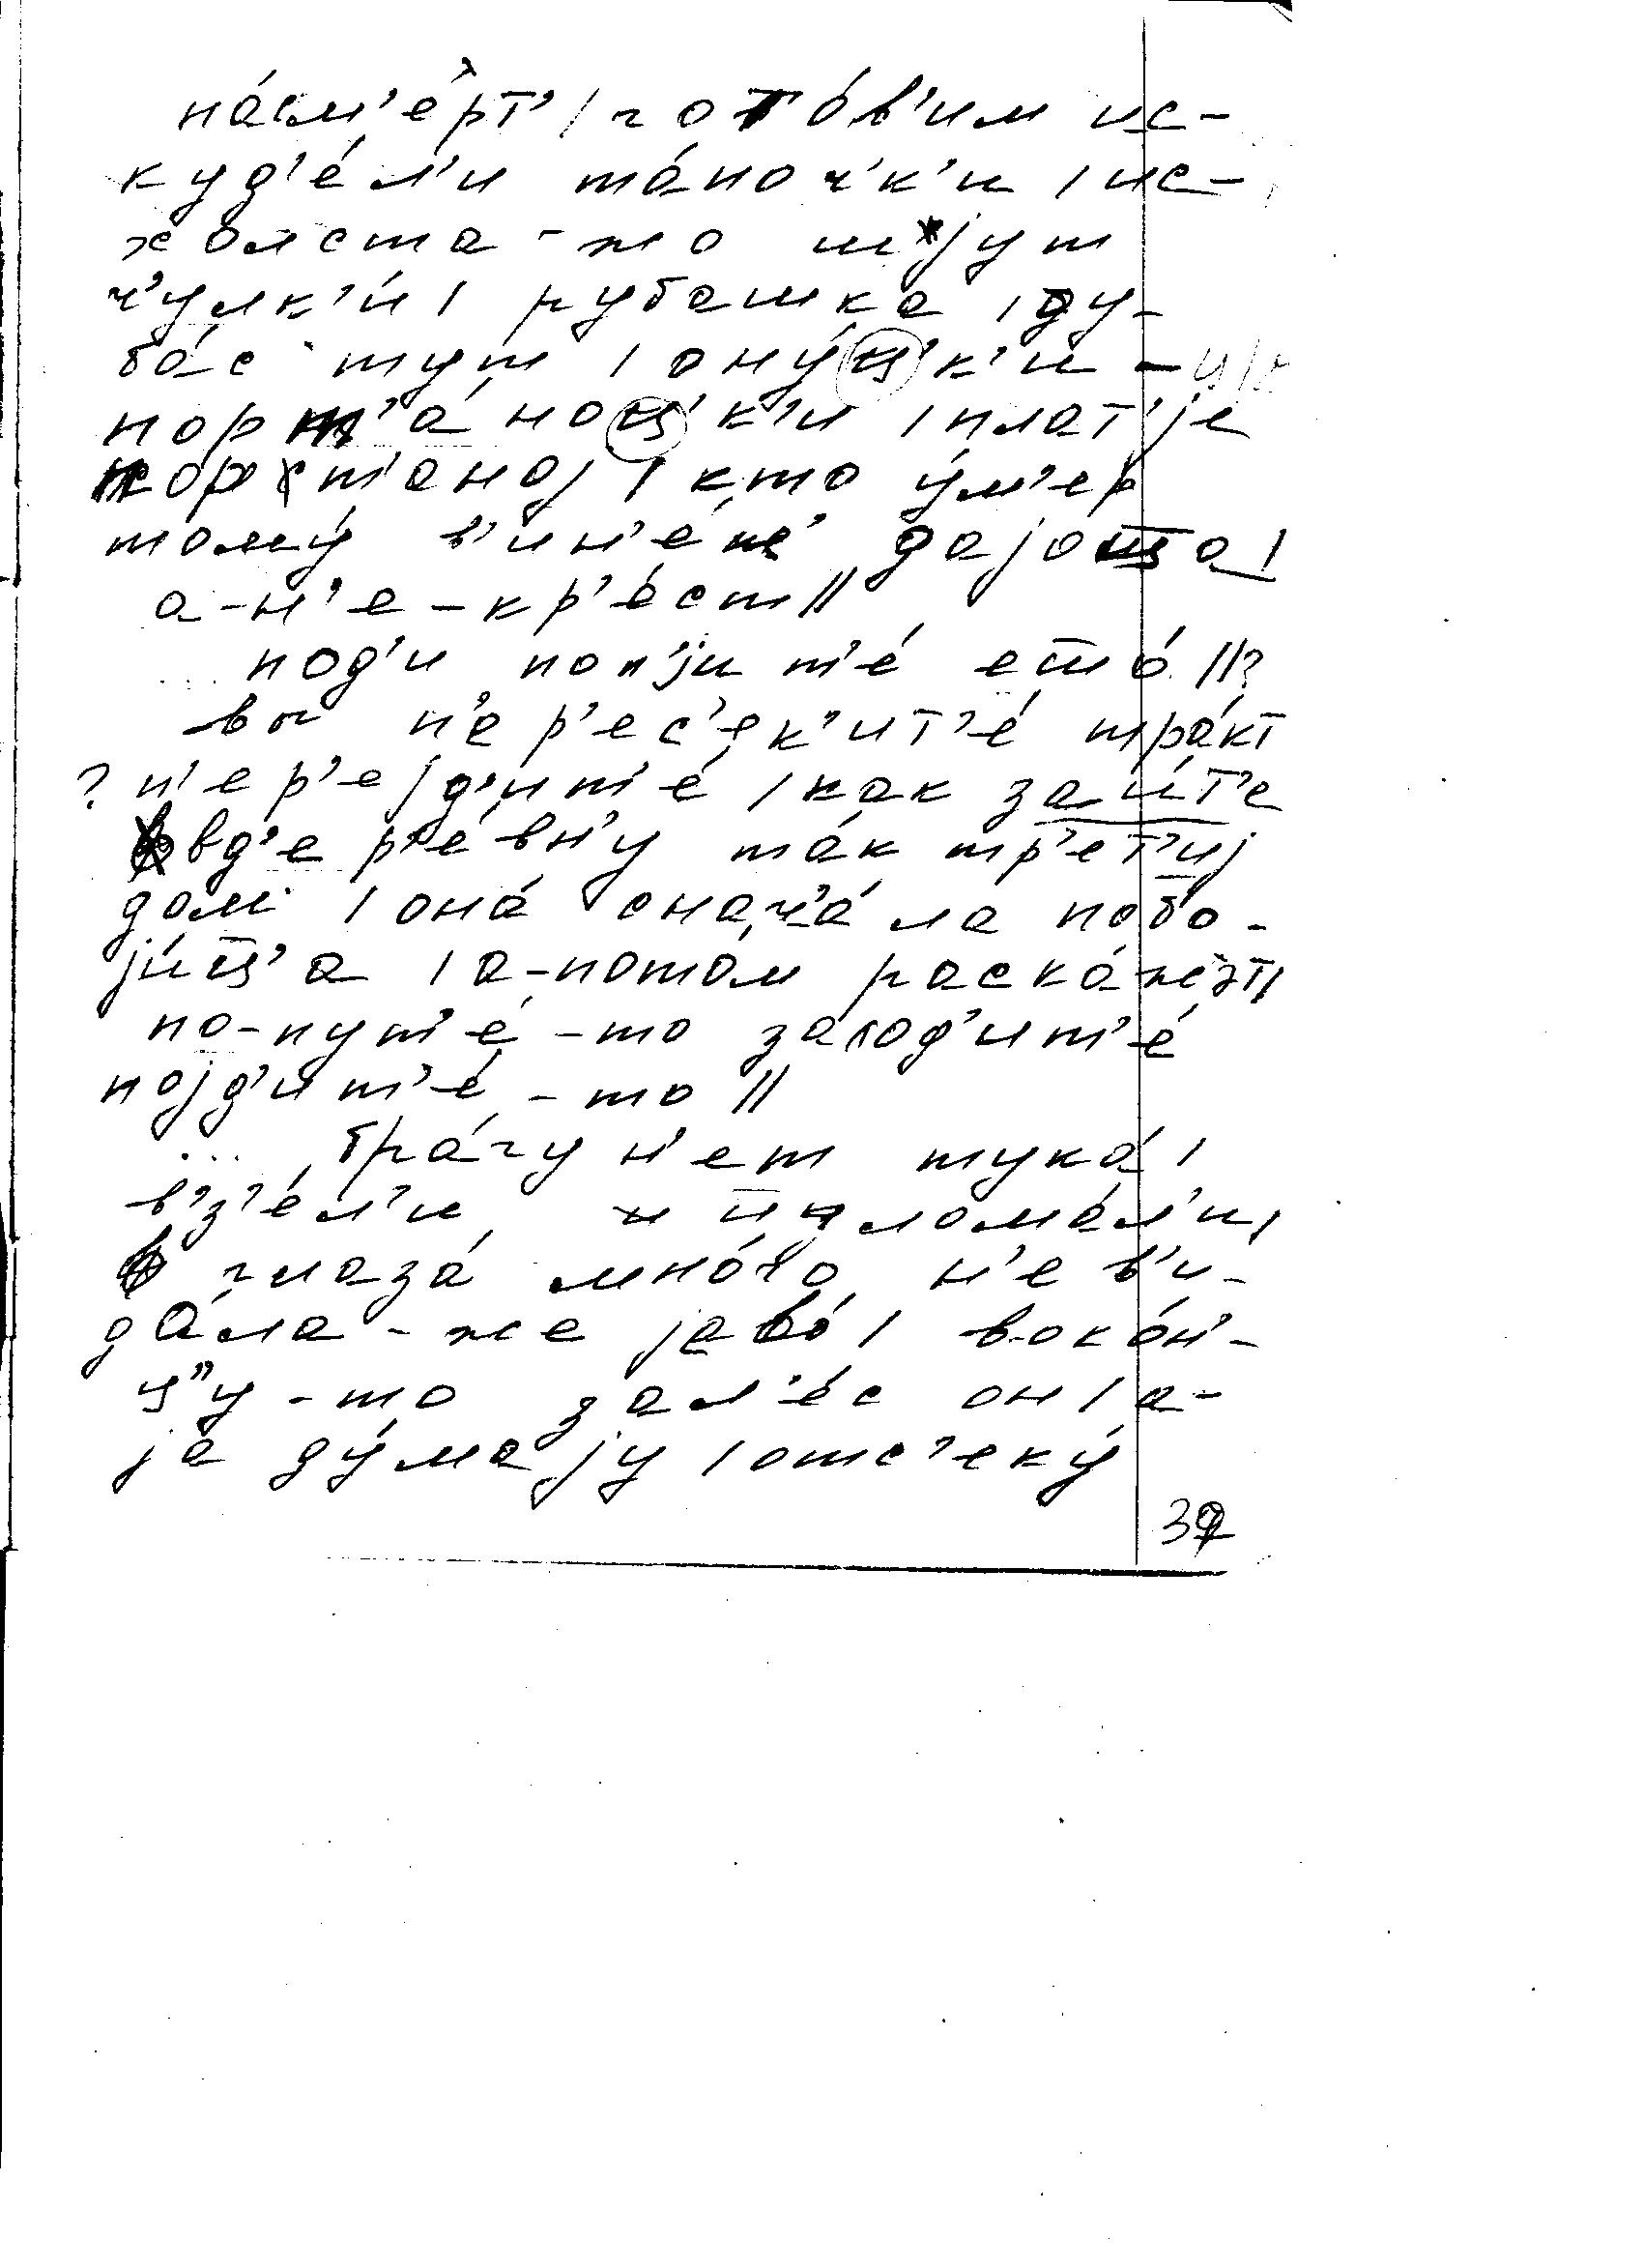 на́см'ерт' / гото́в'им ис-
куд'е́л'и та́ноч'к'и / ис-
холста-то шjут
ч'улк'и́ / рубашка / ду-
ба́с тут / ону́ц'к'и –
порт'а́ноц'к'и / плат'jе
порт'аноj / кто у́м'ер
тому́ в'ин'е́ц' даjоца /
а-н'е-кр'е́ст //
... под'и поп'jит'е́ ето́ // ?
вы п'ер'ес'ек'ит'е́ тра́кт
? п'ер'еjд'ит'е́ / как заи́т'е
вд'ер'е́вн'у та́к тр'ет'иj
дом / она́ снач'а́ла побо-
jи́ц'а / а-пото́м раска́жэт /
по-пут'е́-то заход'ит'е́
поjд'ит'е́-то //
... бра́гу н'ет тука́ /
в'з'е́л'и и лома́л'и /
глаза́ мно́го н'е в'и-
да́ла-же jево́ / в-око́н'-
ц"у-то зал'е́с он / а-
jа ду́маjу / отс'еку́